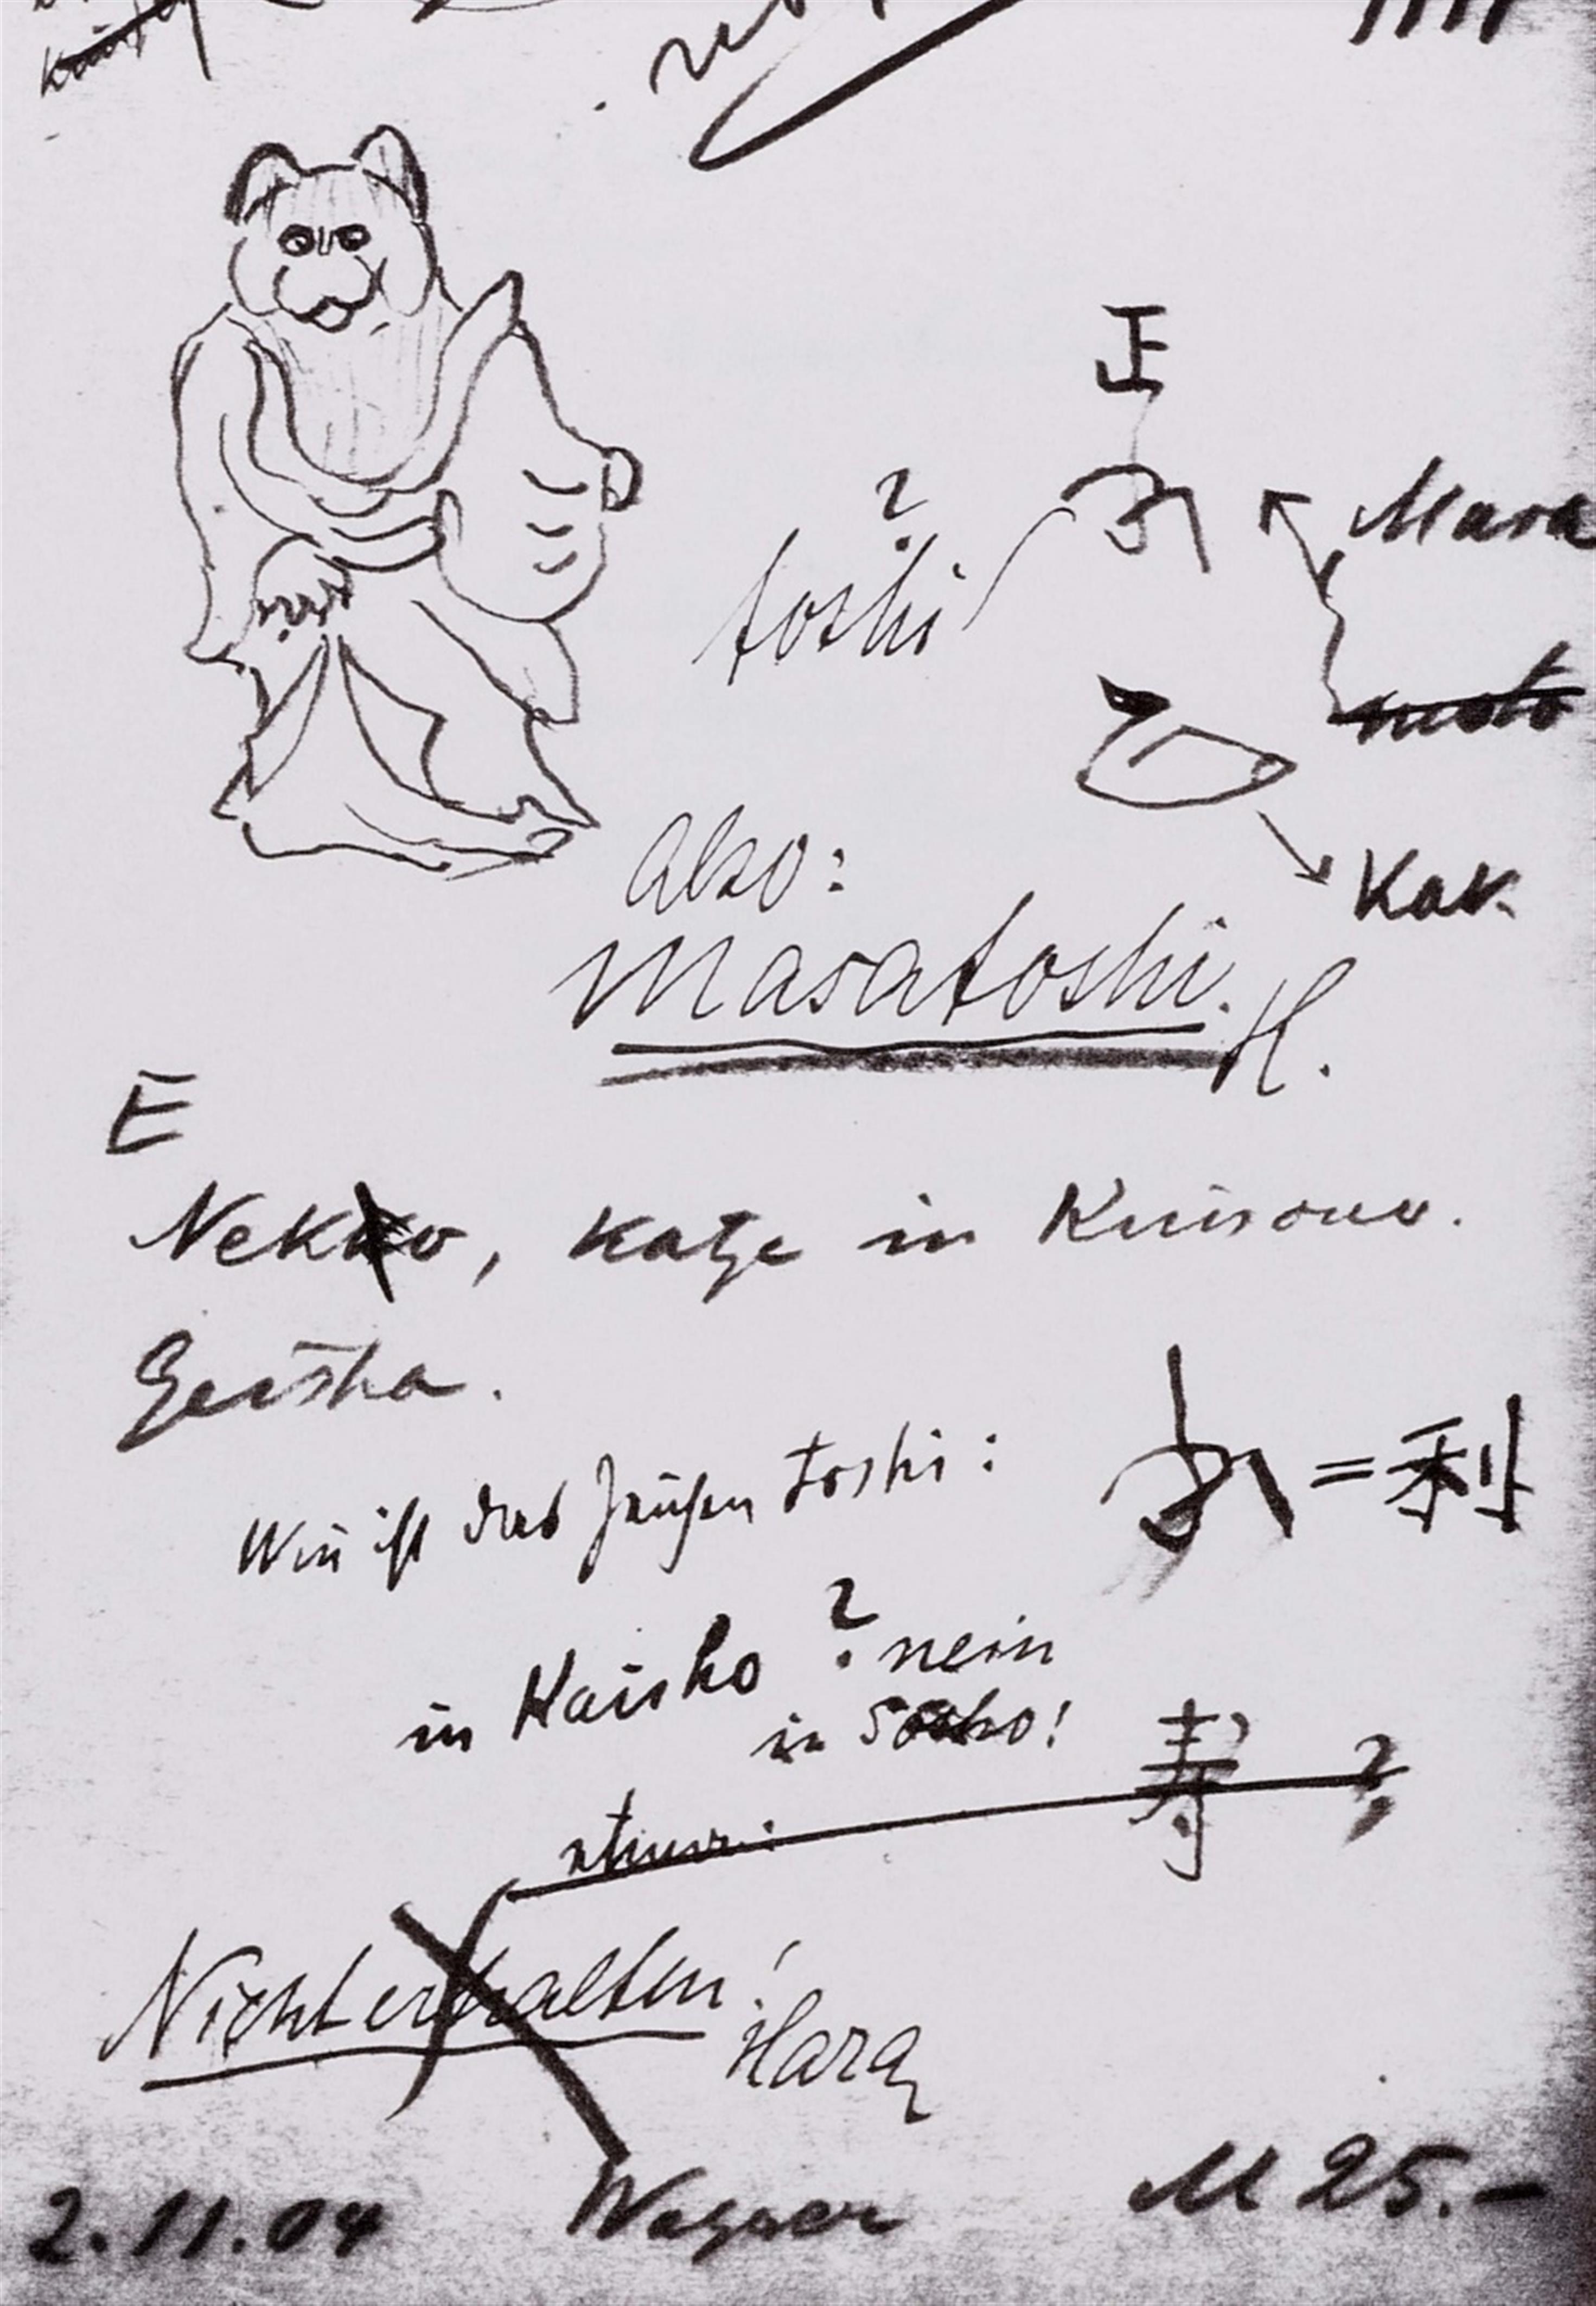 正
Masa
?
toshi
Kak.
Also:
Masatoshi.
H.
E
Neko, Katze in Kimono.
Geisha.
Wie ist das Zeichen toshi:
= 利
in Kaisho ? nein
in Sosho!
寿 ?
Nicht erhalten!
Hara
2.11.04 Wagner M 25.-